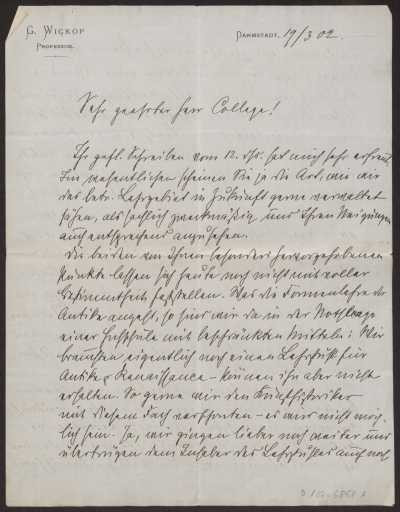 G. Wickop
Professor.
Darmstadt, 19/3 02.
Sehr geehrter Herr College!
Ihr gefl. Schreiben vom 12. ds. hat mich sehr erfreut.
Im wesentlichen scheinen Sie ja die Art, wie wir
das betr. Lehrgebiet in Zukunft gerne verwaltet
sähen, als sachlich zweckmäßig und Ihren Neigungen
auch entsprechend anzusehen.
Die beiden von Ihnen besonders hervorgehobenen
Punkte lassen sich heute noch nicht mit voller
Bestimmtheit feststellen. Was die Formenlehre der
Antike angeht, so sind wir da in der Nothlage
einer Hochschule mit beschränkten Mitteln: Wir
brauchen eigentlich noch einen Lehrstuhl für
Antike & Renaissance - können ihn aber nicht
erhalten. So gerne wir den Kunsthistoriker
mit diesem Fach verschonten - es wird nicht mög-
lich sein. Ja, wir gingen lieber noch weiter und
übertrügen dem Inhaber des Lehrstuhles auch noch